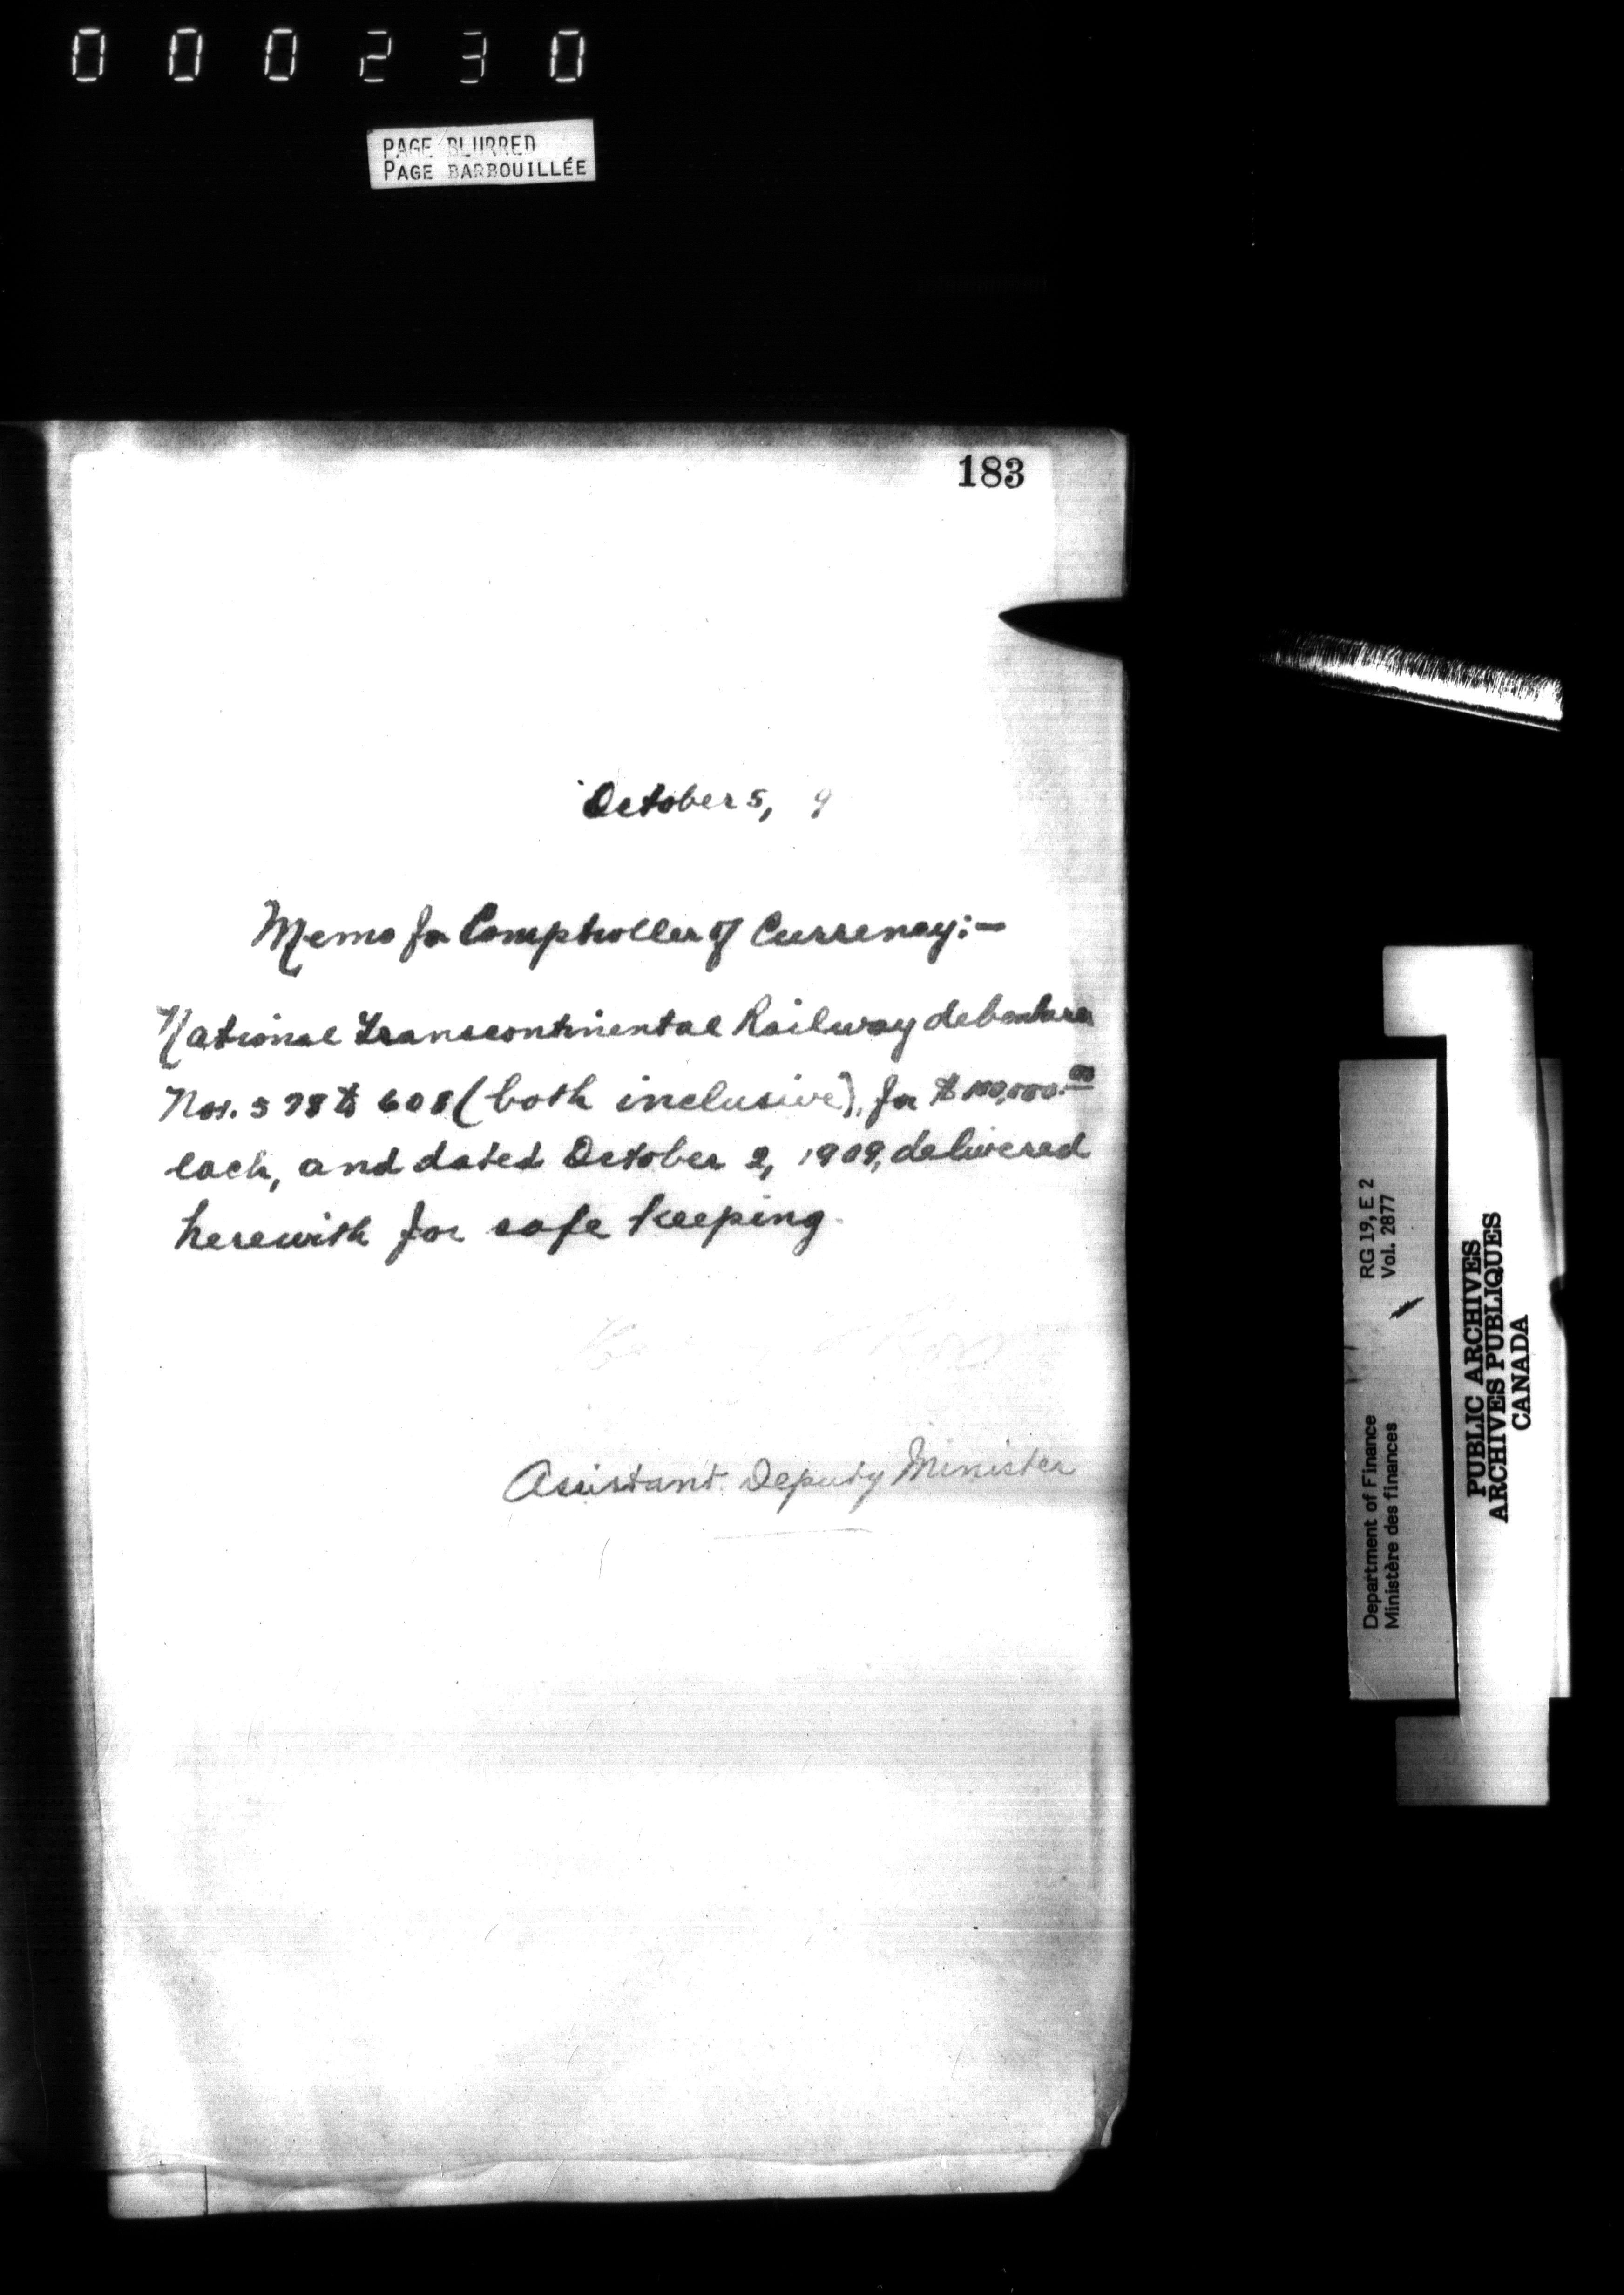 000230
PAGE BLURRED
PAGE BARBOUILLÉE
183
October 5, 9
Memo for Comptroller of Currency:—
National Transcontinental Railway debentures
Nos. 598 to 608 (both inclusive), for $100,000.00
each, and dated October 2, 1909, delivered
herewith for safe keeping.
Assistant Deputy Minister
RG 19, E 2
Vol. 2877
Department of Finance
Ministère des finances
PUBLIC ARCHIVES
ARCHIVES PUBLIQUES
CANADA